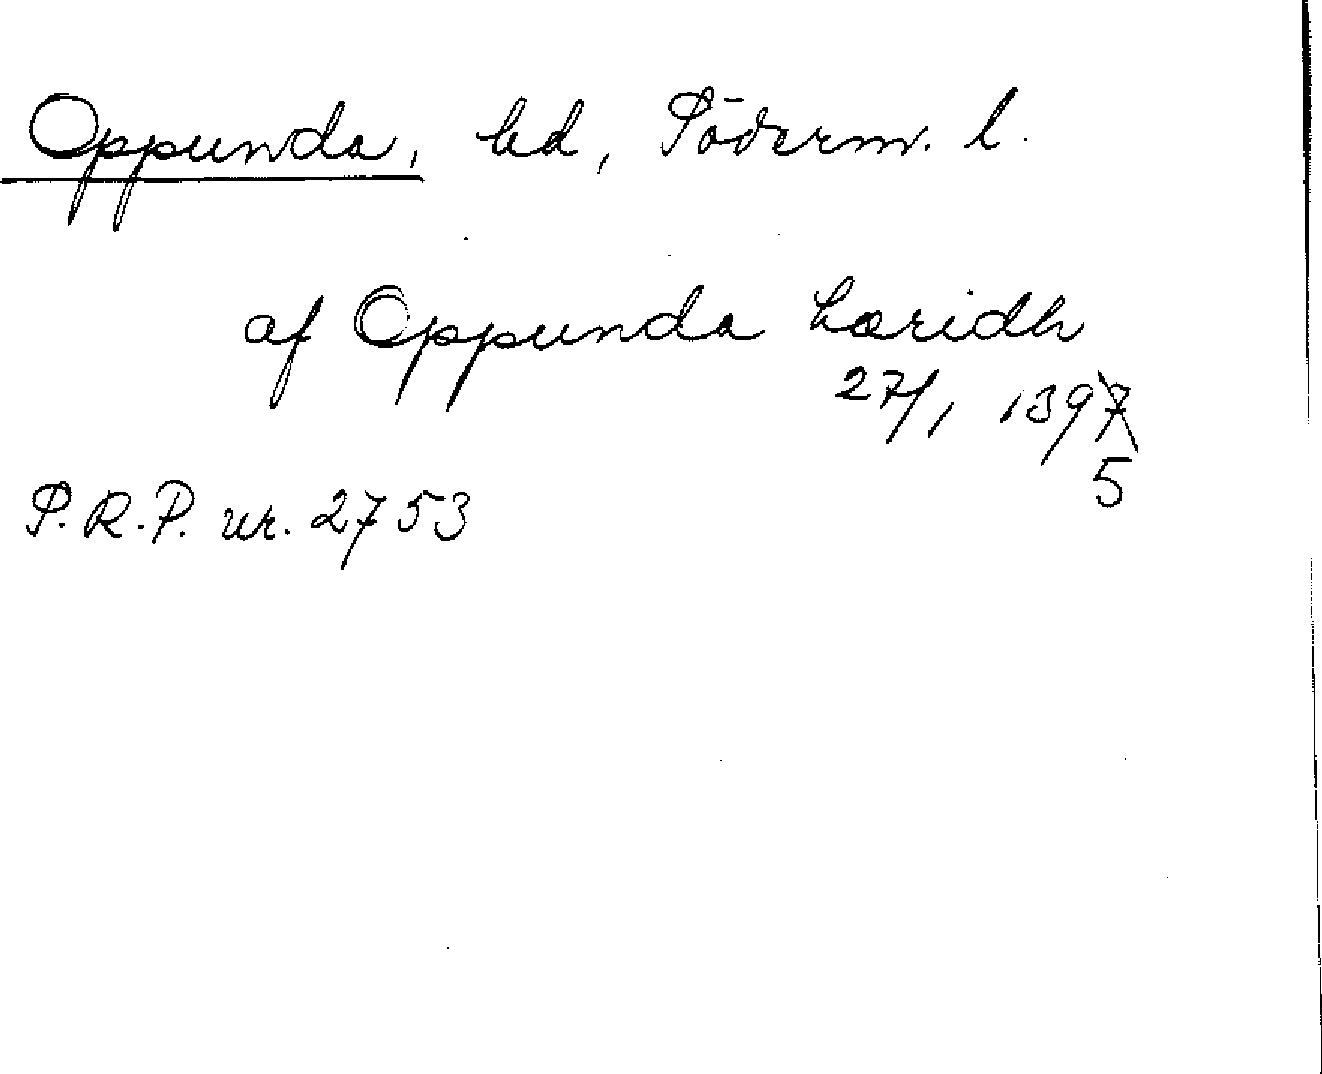 Oppunda, hd, Söderm. l.
af Oppunda hæridh
27/1 1397
5
S.R.P. nr. 2753